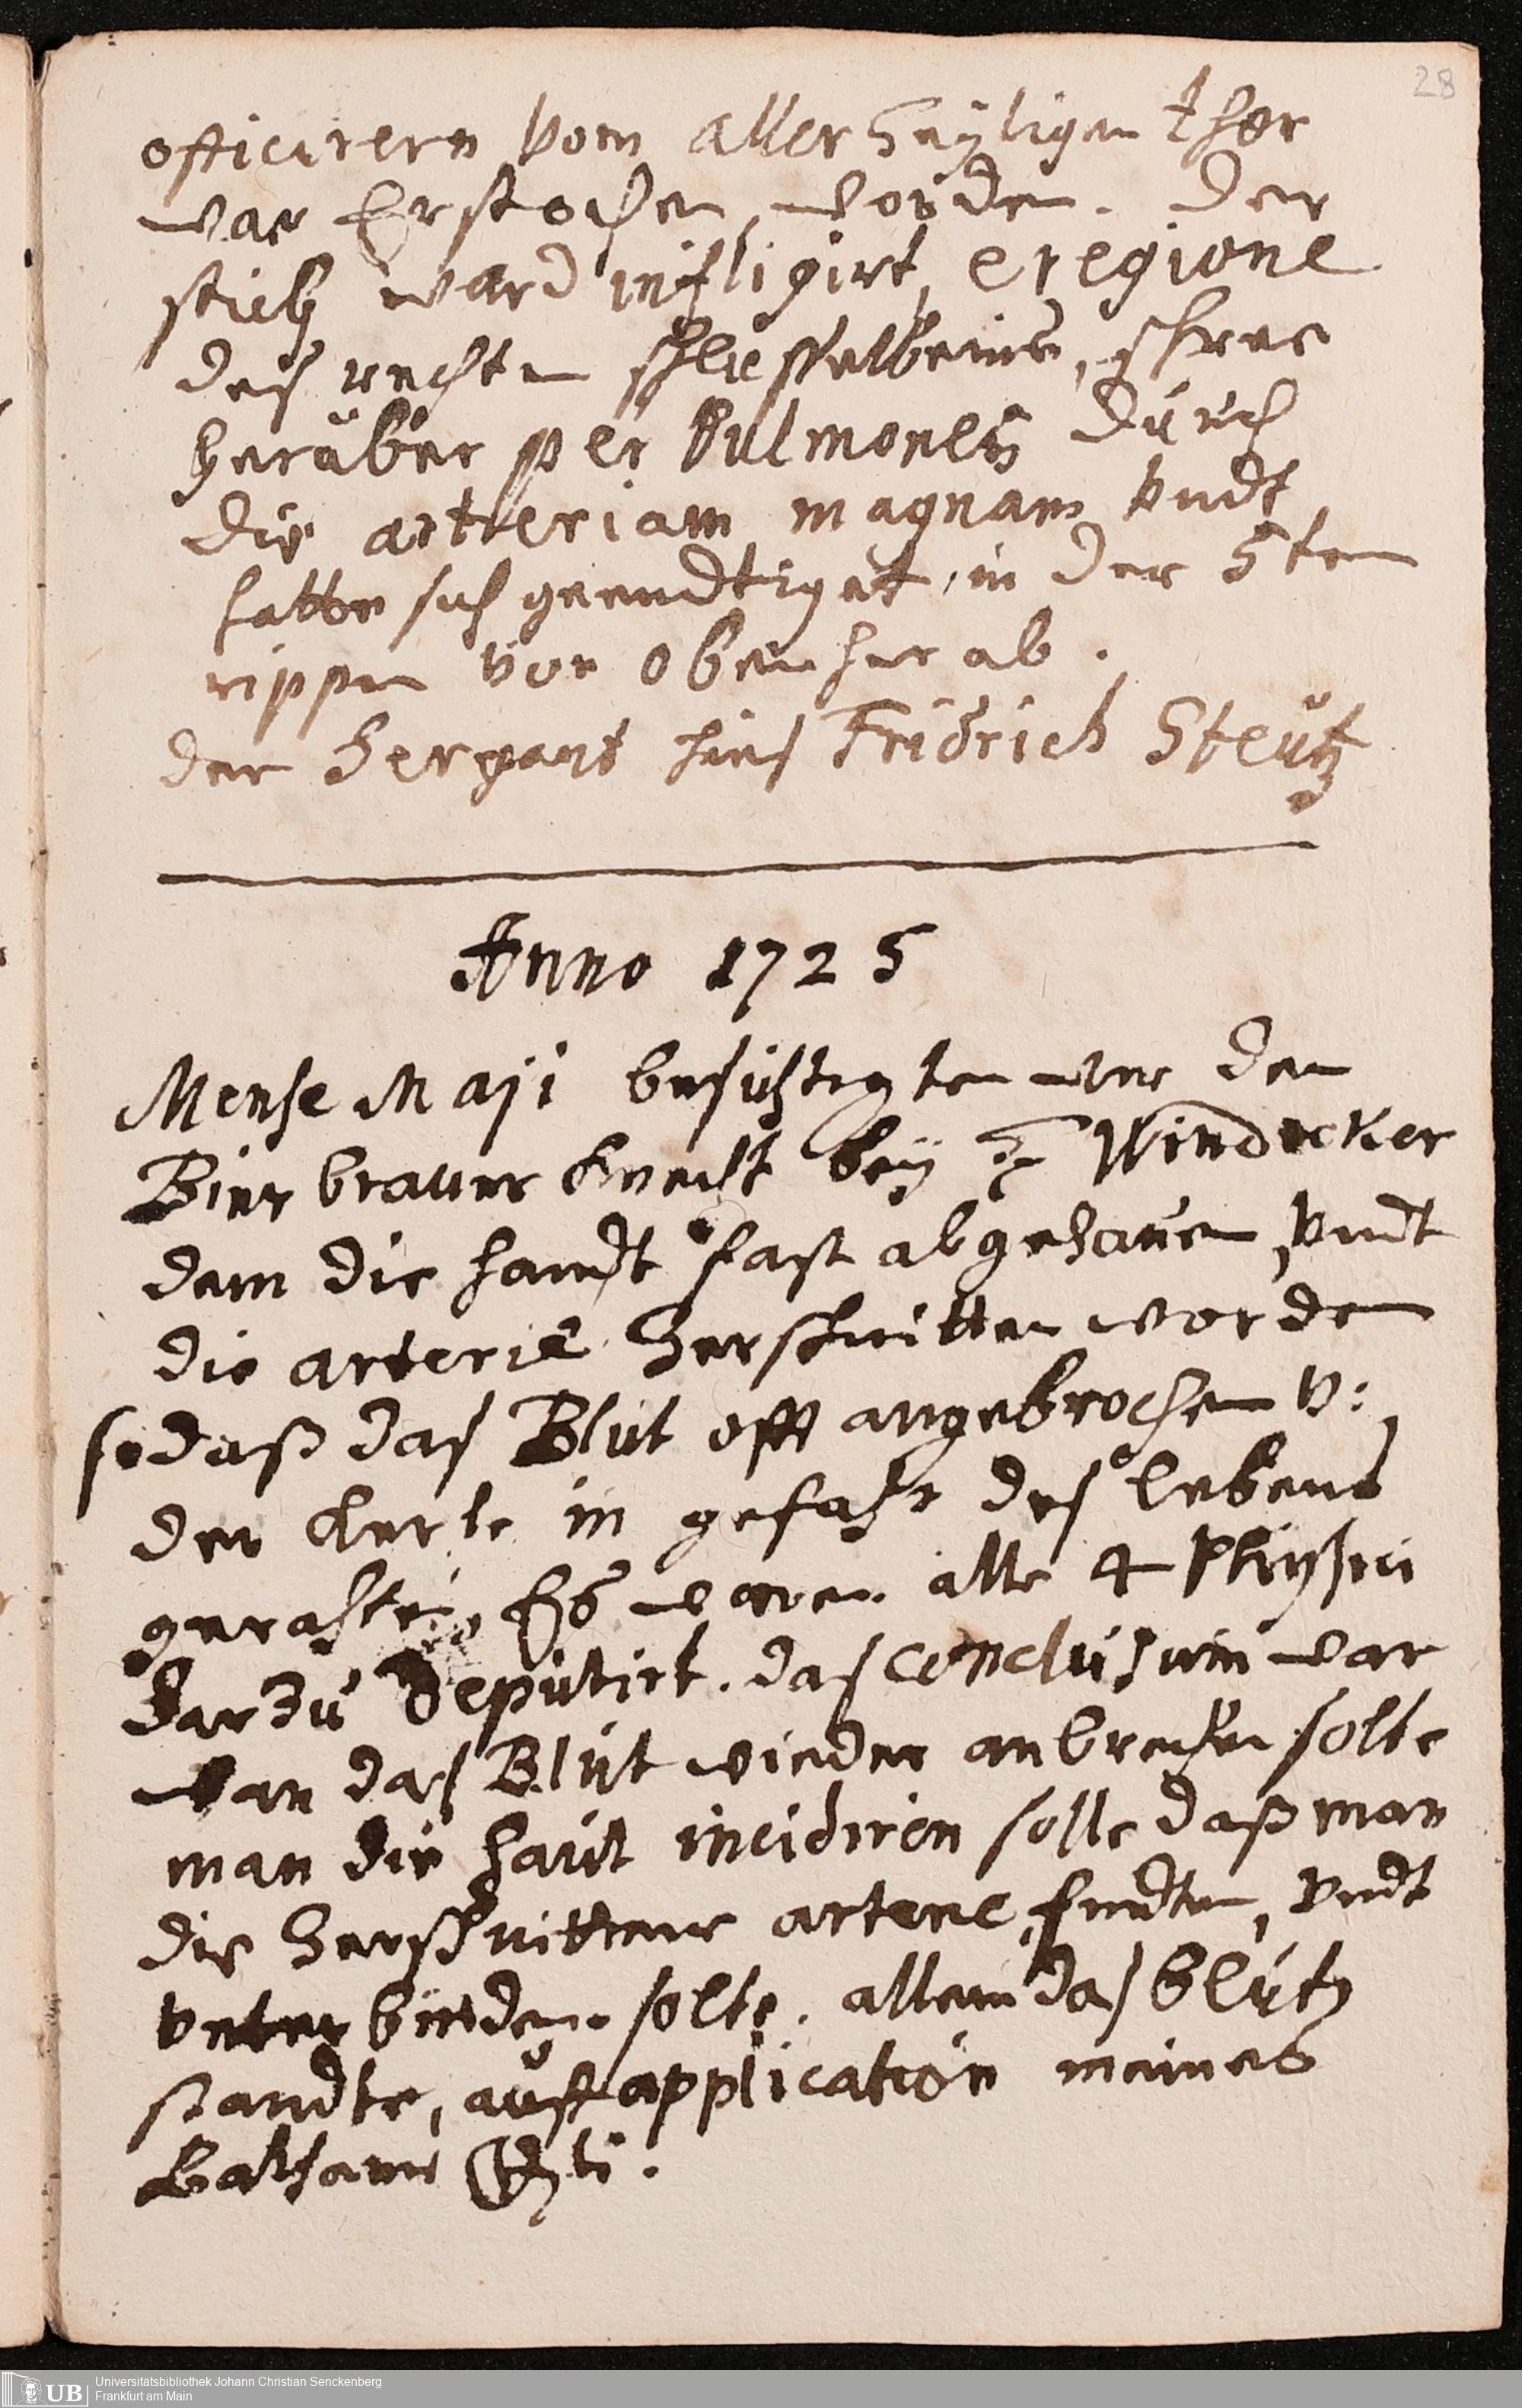 28
officirern vom allerheyligen thor
war Erstochen worden. der
stich ward infligirt, e regione
deß rechten schlüsselbeins, schree
herüber per Pulmones durch
die artteriam magnam vndt
hatte sich geendtiget, in der 5ten
rippen von oben her ab.
der Sergant hies Fridrich Steütz
Anno 1725
Mense Maji besichtigten wir den
Bierbrauer knecht bey H Windecker
dem die handt fast abgehauen, vndt
die arterie zerschnitten worden
so daß daß Blut offt angebrochen v:
der kerle in gefahr deß lebens
gerahten, Es waren alle 4 Physici
darzu deputirt. daß conclusum war
wan daß Blut wieder anbrechen solte
man die haut incidiren solle daß man
die zerschnittene arterie findten, vndt
vnterbinden solte. allein daß blut
standte, auff application meines
Balsams
Universitätsbibliothek Johann Christian Senckenberg
UB Frankfurt am Main